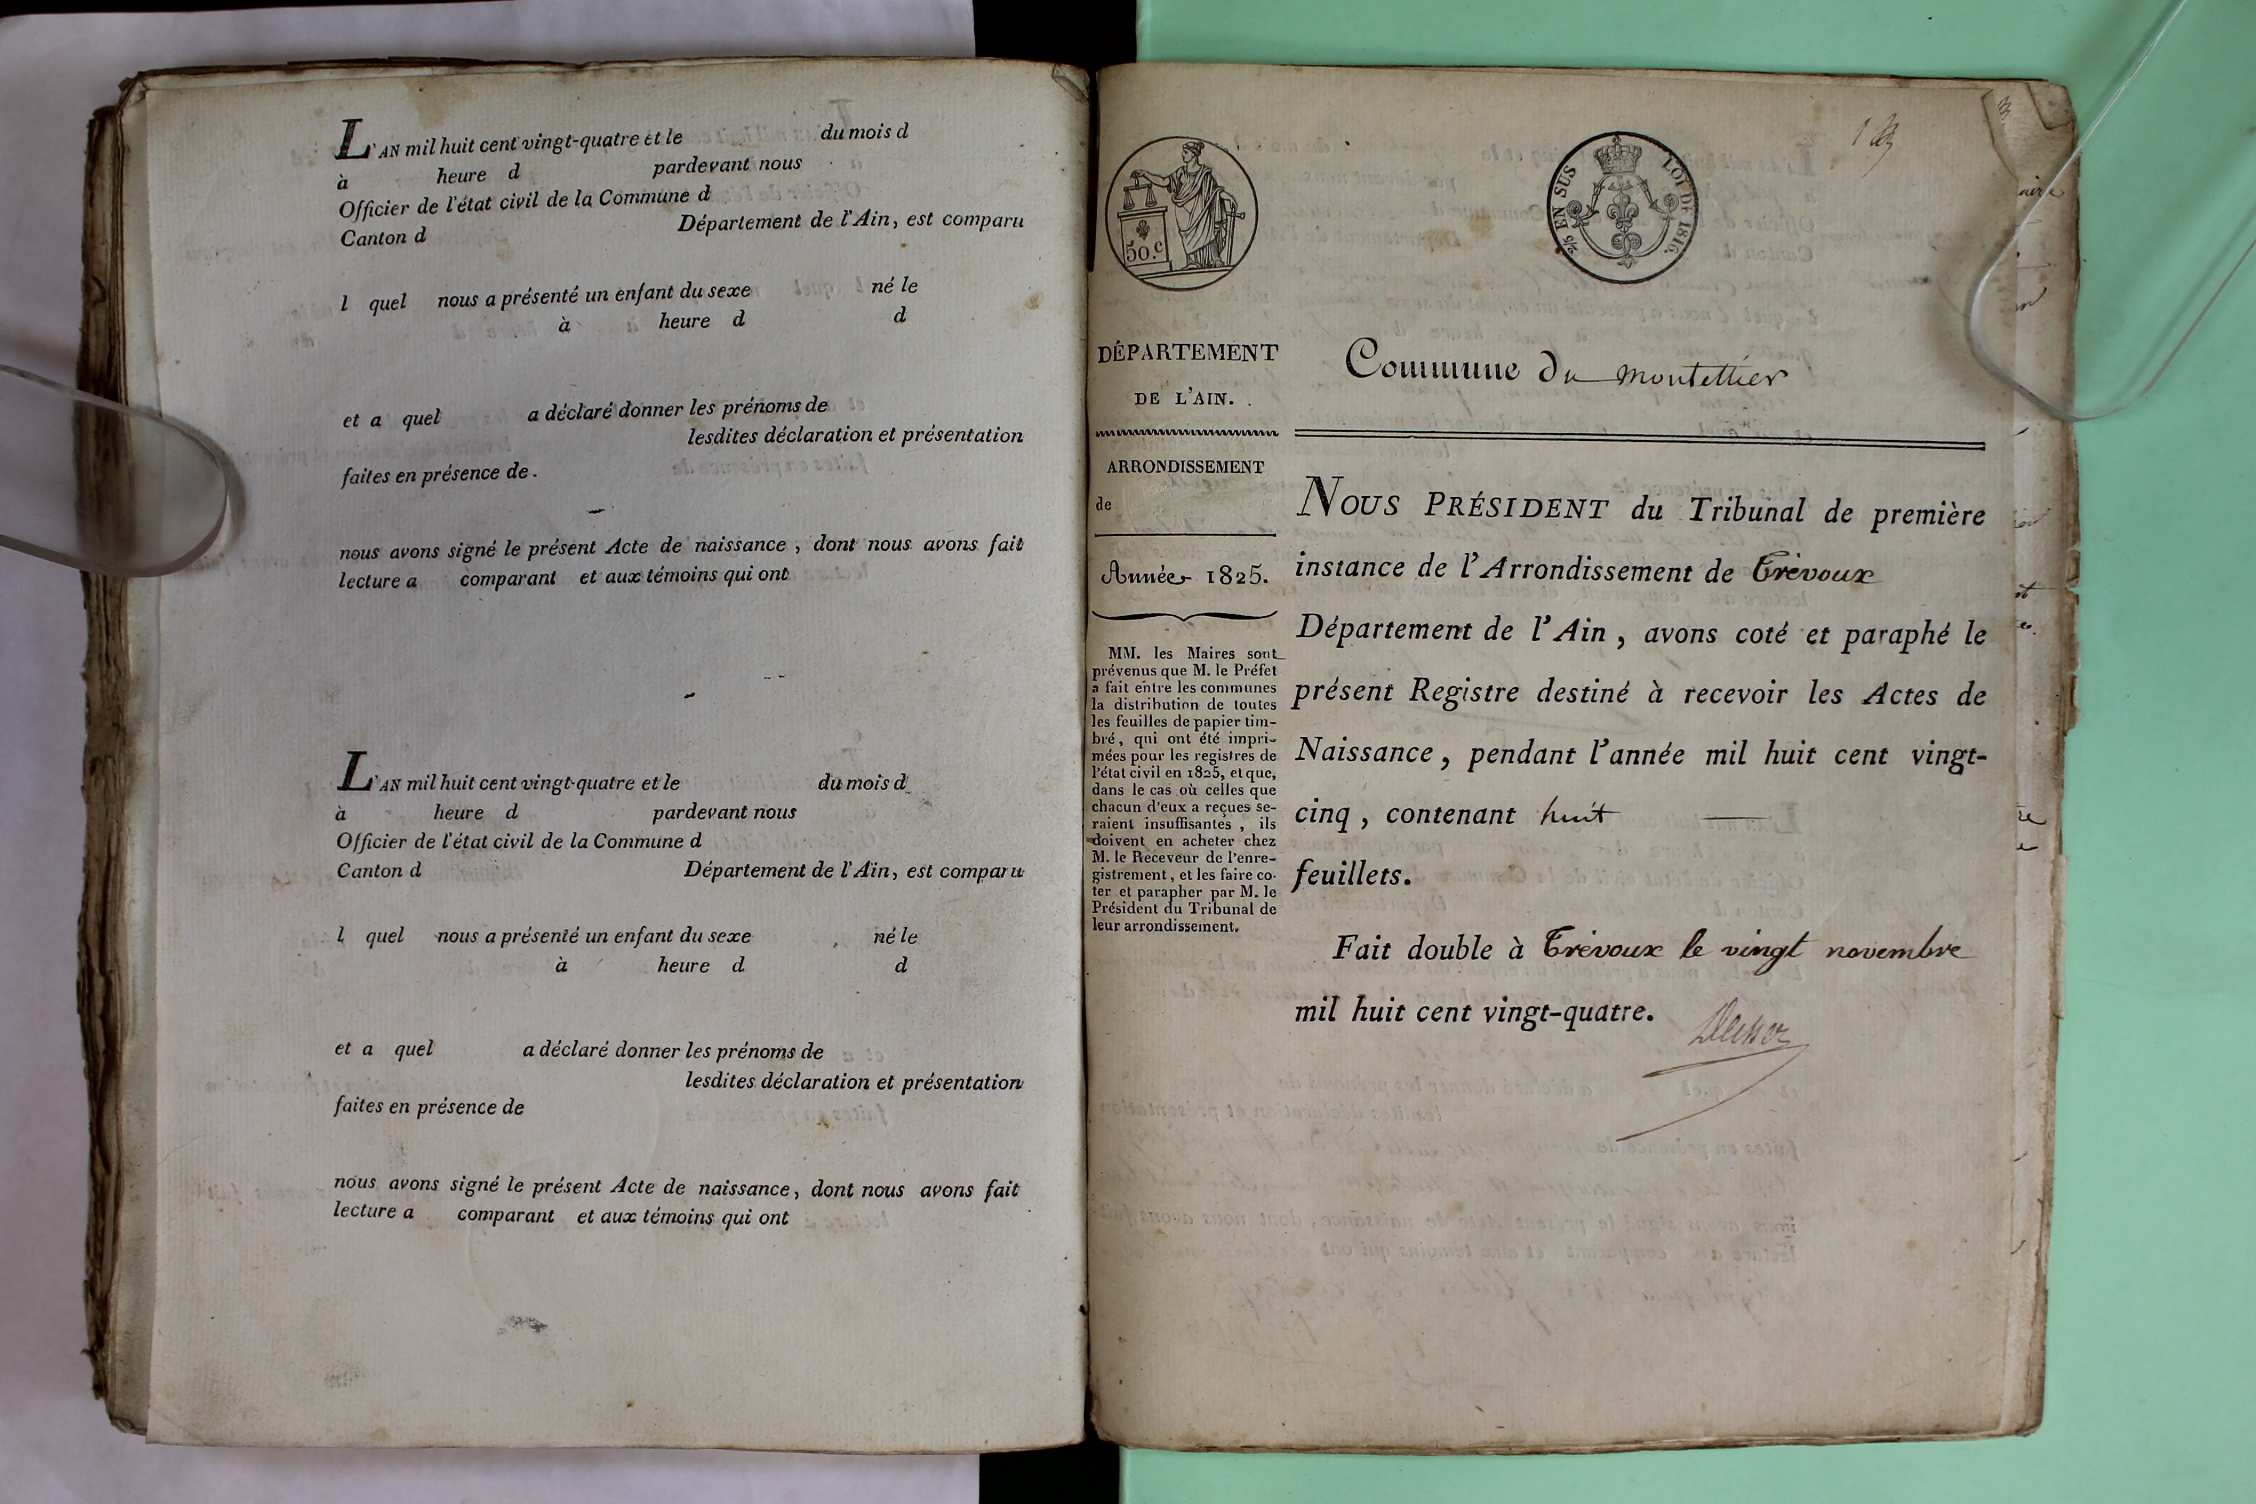 L'AN mil huit cent vingt-quatre et le du mois d
à heure d pardevant nous
Officier de l'état civil de la Commune d
Canton d Département de l'Ain, est comparu
l quel nous a présenté un enfant du sexe né le
à heure d d
et a quel a déclaré donner les prénoms de
lesdites déclaration et présentation
faites en présence de.
nous avons signé le présent Acte de naissance, dont nous avons fait
lecture a comparant et aux témoins qui ont
L'AN mil huit cent vingt-quatre et le du mois d
à heure d pardevant nous
Officier de l'état civil de la Commune d
Canton d Département de l'Ain, est comparu
l quel nous a présenté un enfant du sexe né le
à heure d d
et a quel a déclaré donner les prénoms de
lesdites déclaration et présentation
faites en présence de
nous avons signé le présent Acte de naissance, dont nous avons fait
lecture a comparant et aux témoins qui ont
50.c
2/5 EN SUS LOI DE 1816.
DÉPARTEMENT
DE L'AIN.
ARRONDISSEMENT
de
Année 1825.
MM. les Maires sont
prévenus que M. le Préfet
a fait entre les communes
la distribution de toutes
les feuilles de papier tim-
bré, qui ont été impri-
mées pour les registres de
l'état civil en 1825, et que,
dans le cas où celles que
chacun d'eux a reçues se-
raient insuffisantes, ils
doivent en acheter chez
M. le Receveur de l'enre-
gistrement, et les faire co-
ter et parapher par M. le
Président du Tribunal de
leur arrondissement.
Commune du montellier
NOUS PRÉSIDENT du Tribunal de première
instance de l'Arrondissement de Trévoux
Département de l'Ain, avons coté et paraphé le
présent Registre destiné à recevoir les Actes de
Naissance, pendant l'année mil huit cent vingt-
cinq, contenant huit
feuillets.
Fait double à Trévoux le vingt novembre
mil huit cent vingt-quatre.